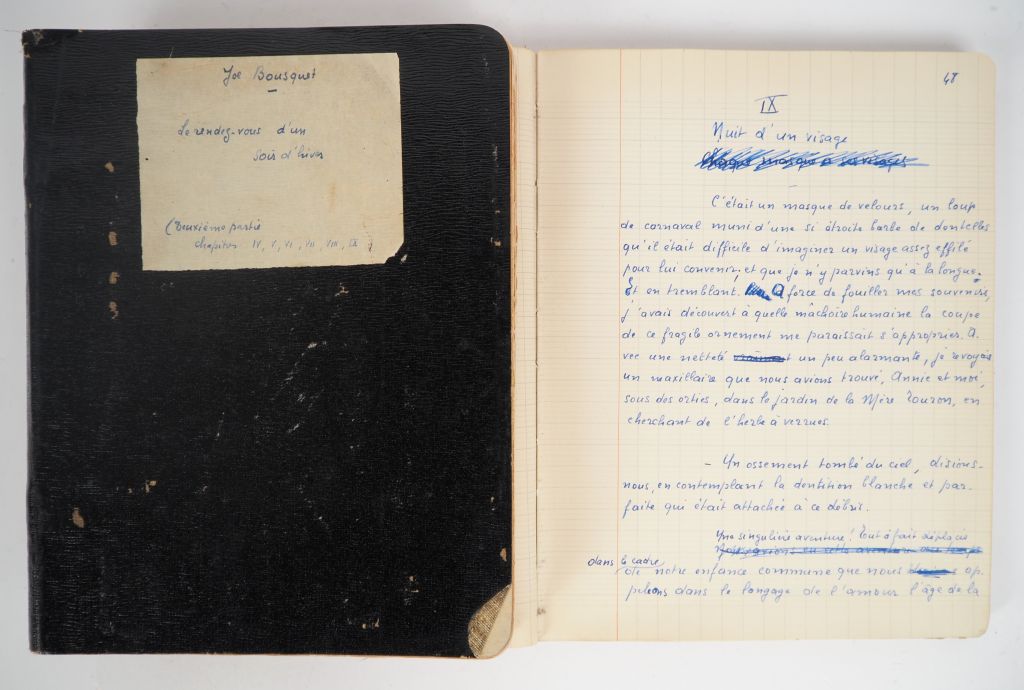 Joë Bousquet
Le rendez-vous d'un
soir d'hiver
(Deuxième partie
chapitres IV, V, VI, VII, VIII, IX)
48
IX
Nuit d'un visage
C'était un masque de velours, un loup
de carnaval muni d'une si étroite barbe de dentelles
qu'il était difficile d'imaginer un visage assez effilé
pour lui convenir; et que je n'y parvins qu'à la longue,
Et en tremblant. A force de fouiller mes souvenirs,
j'avais découvert à quelle mâchoire humaine la coupe
de ce fragile ornement me paraissait s'approprier. A-
vec une netteté un peu alarmante, je revoyais
un maxillaire que nous avions trouvé, Annie et moi,
sous des orties, dans le jardin de la Mère Touron, en
cherchant de l'herbe à verrues.
- Un ossement tombé du ciel, disions-
nous, en contemplant la dentition blanche et par-
faite qui était attachée à ce débris.
Une singulière aventure! Tout à fait déplacée
dans le cadre
de notre enfance commune que nous ap-
pelions dans le langage de l'amour l'âge de la